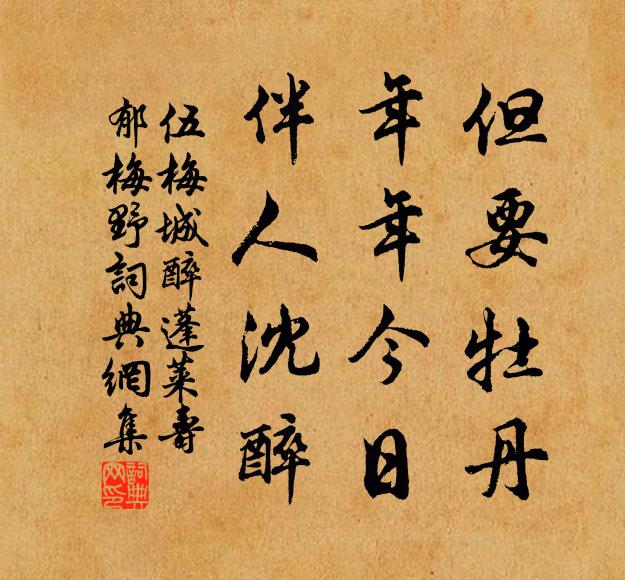 但要牡丹
年年今日
伴人沈醉
伍梅城醉蓬萊壽
郁梅野詞典網集
詞典網印